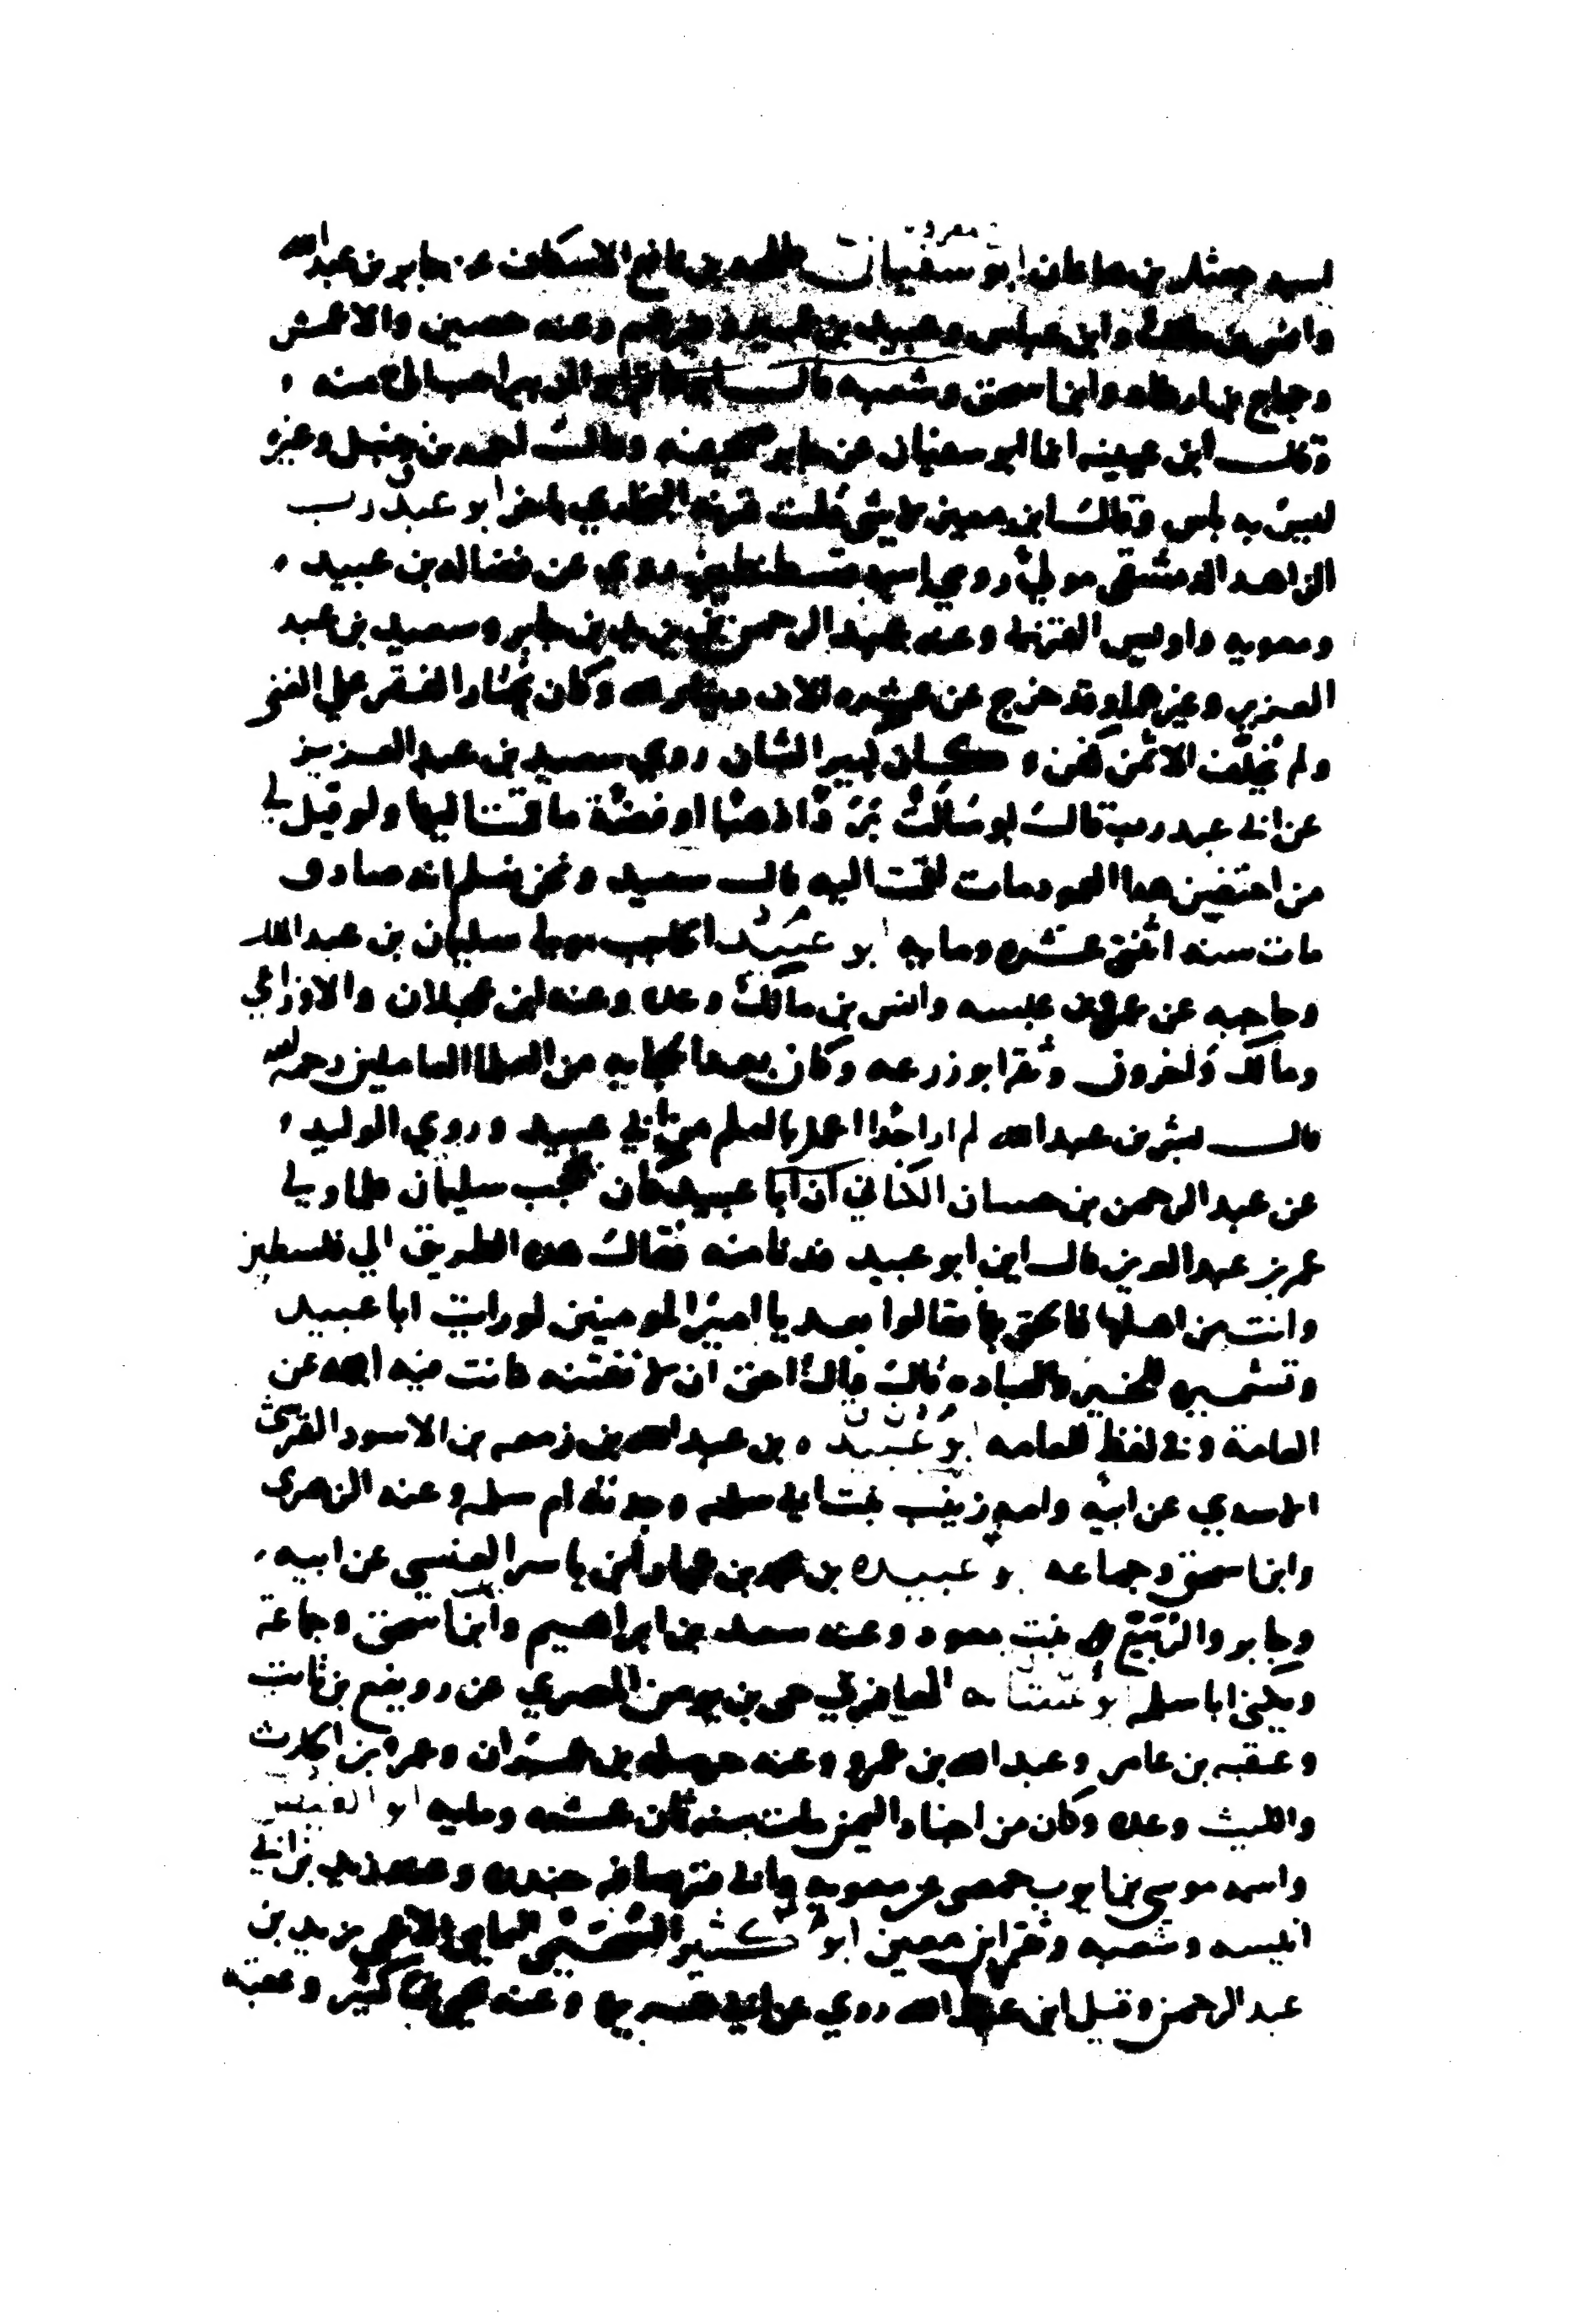 اسمه جعثل بن هاعان ابو سفيان طلحه بن نافع الاسكاف عن جابر بن عبد الله
وانس بن مالك وابن عباس وعبيد بن عمير وغيرهم وعنه حصين والاعمش
وحجاج بن ارطاه وابن اسحق وشعبه قال ابو الزبير احب الي منه
وقال ابن عيينه انما ابو سفيان عن جابر صحيفه وقال احمد بن حنبل وغيره
ليس به باس وقال ابن معين لا شي قلت قرنه البخاري باخر ابو عبد رب
الزاهد الدمشقي مولي رومي اسمه قسطنطين روي عن فضاله بن عبيد
ومعويه واويس القرني وعنه عبد الرحمن بن يزيد بن جابر وسعيد بن عبد
العزيز وغيرهما وقد خرج عن عشره الاف دينار لله وكان يختار الفقر علي الغني
ولم يخلف الا ثمن كفن وكان كبير الشان روي سعيد بن عبد العزيز
عن ابي عبد رب قال لو سالت بردا ذهبا او فضة ما قمت اليها ولو قيل لي
من احتضن هذا العمود مات لقمت اليه قال سعيد ونحن نعلم انه صادق
مات سنه اثنتي عشره ومايه ابو عبيد الحاجب مولي سليمان بن عبد الملك
وحاجبه عن عمرو بن عبسه وانس بن مالك وعده وعنه ابن عجلان والاوزاعي
ومالك واخرون وثقه ابو زرعه وكان بعد الحجابه من العلما العاملين رحمه الله
قال بشر بن عبد الله لم ار احدا اعمل بالعلم من ابي عبيد وروي الوليد
عن عبد الرحمن بن حسان الكناني ان ابا عبيد كان يحجب سليمان فلما ولي
عمر بن عبد العزيز قال اين ابو عبيد فدنا منه فقال هذه الطريق الي فلسطين
وانت من اهلها فالحق بها فقالوا بعد يا امير المومنين لو رايت ابا عبيد
وتشميره للخير والعباده قال ذاك احق ان لا نفتنه كانت فيه ابهه عن
العامة وفي لفظ للعامه ابو عبيده بن عبد الله بن زمعه بن الاسود القرشي
الاسدي عن ابيه وامه زينب بنت ابي سلمه وجدته ام سلمه وعنه الزهري
وابن اسحق وجماعه ابو عبيده بن محمد بن عمار بن ياسر العنسي عن ابيه
وجابر والربيع بنت معوذ وعنه سعد بن ابراهيم وابن اسحق وجماعة
ويكني ابا سلمه ابو عشانه المعافري حي بن يومن المصري عن رويفع بن ثابت
وعقبه بن عامر وعبد الله بن عمرو وعنه حرمله بن عمران وعمرو بن الحارث
والليث وعده وكان من اجناد اليمن مات سنه ثمان عشره ومايه ابو الفيض
واسمه موسي بن ايوب حمصي عن معويه وابي قرصافه جندره وعنه زيد بن ابي
انيسه وشعبه وثقه ابن معين ابو كثير السحيمي اليمامي الاعمي يزيد بن
عبد الرحمن وقيل ابن عبد الله روي عن ابي هريره وعنه يحيي بن ابي كثير وعقبه